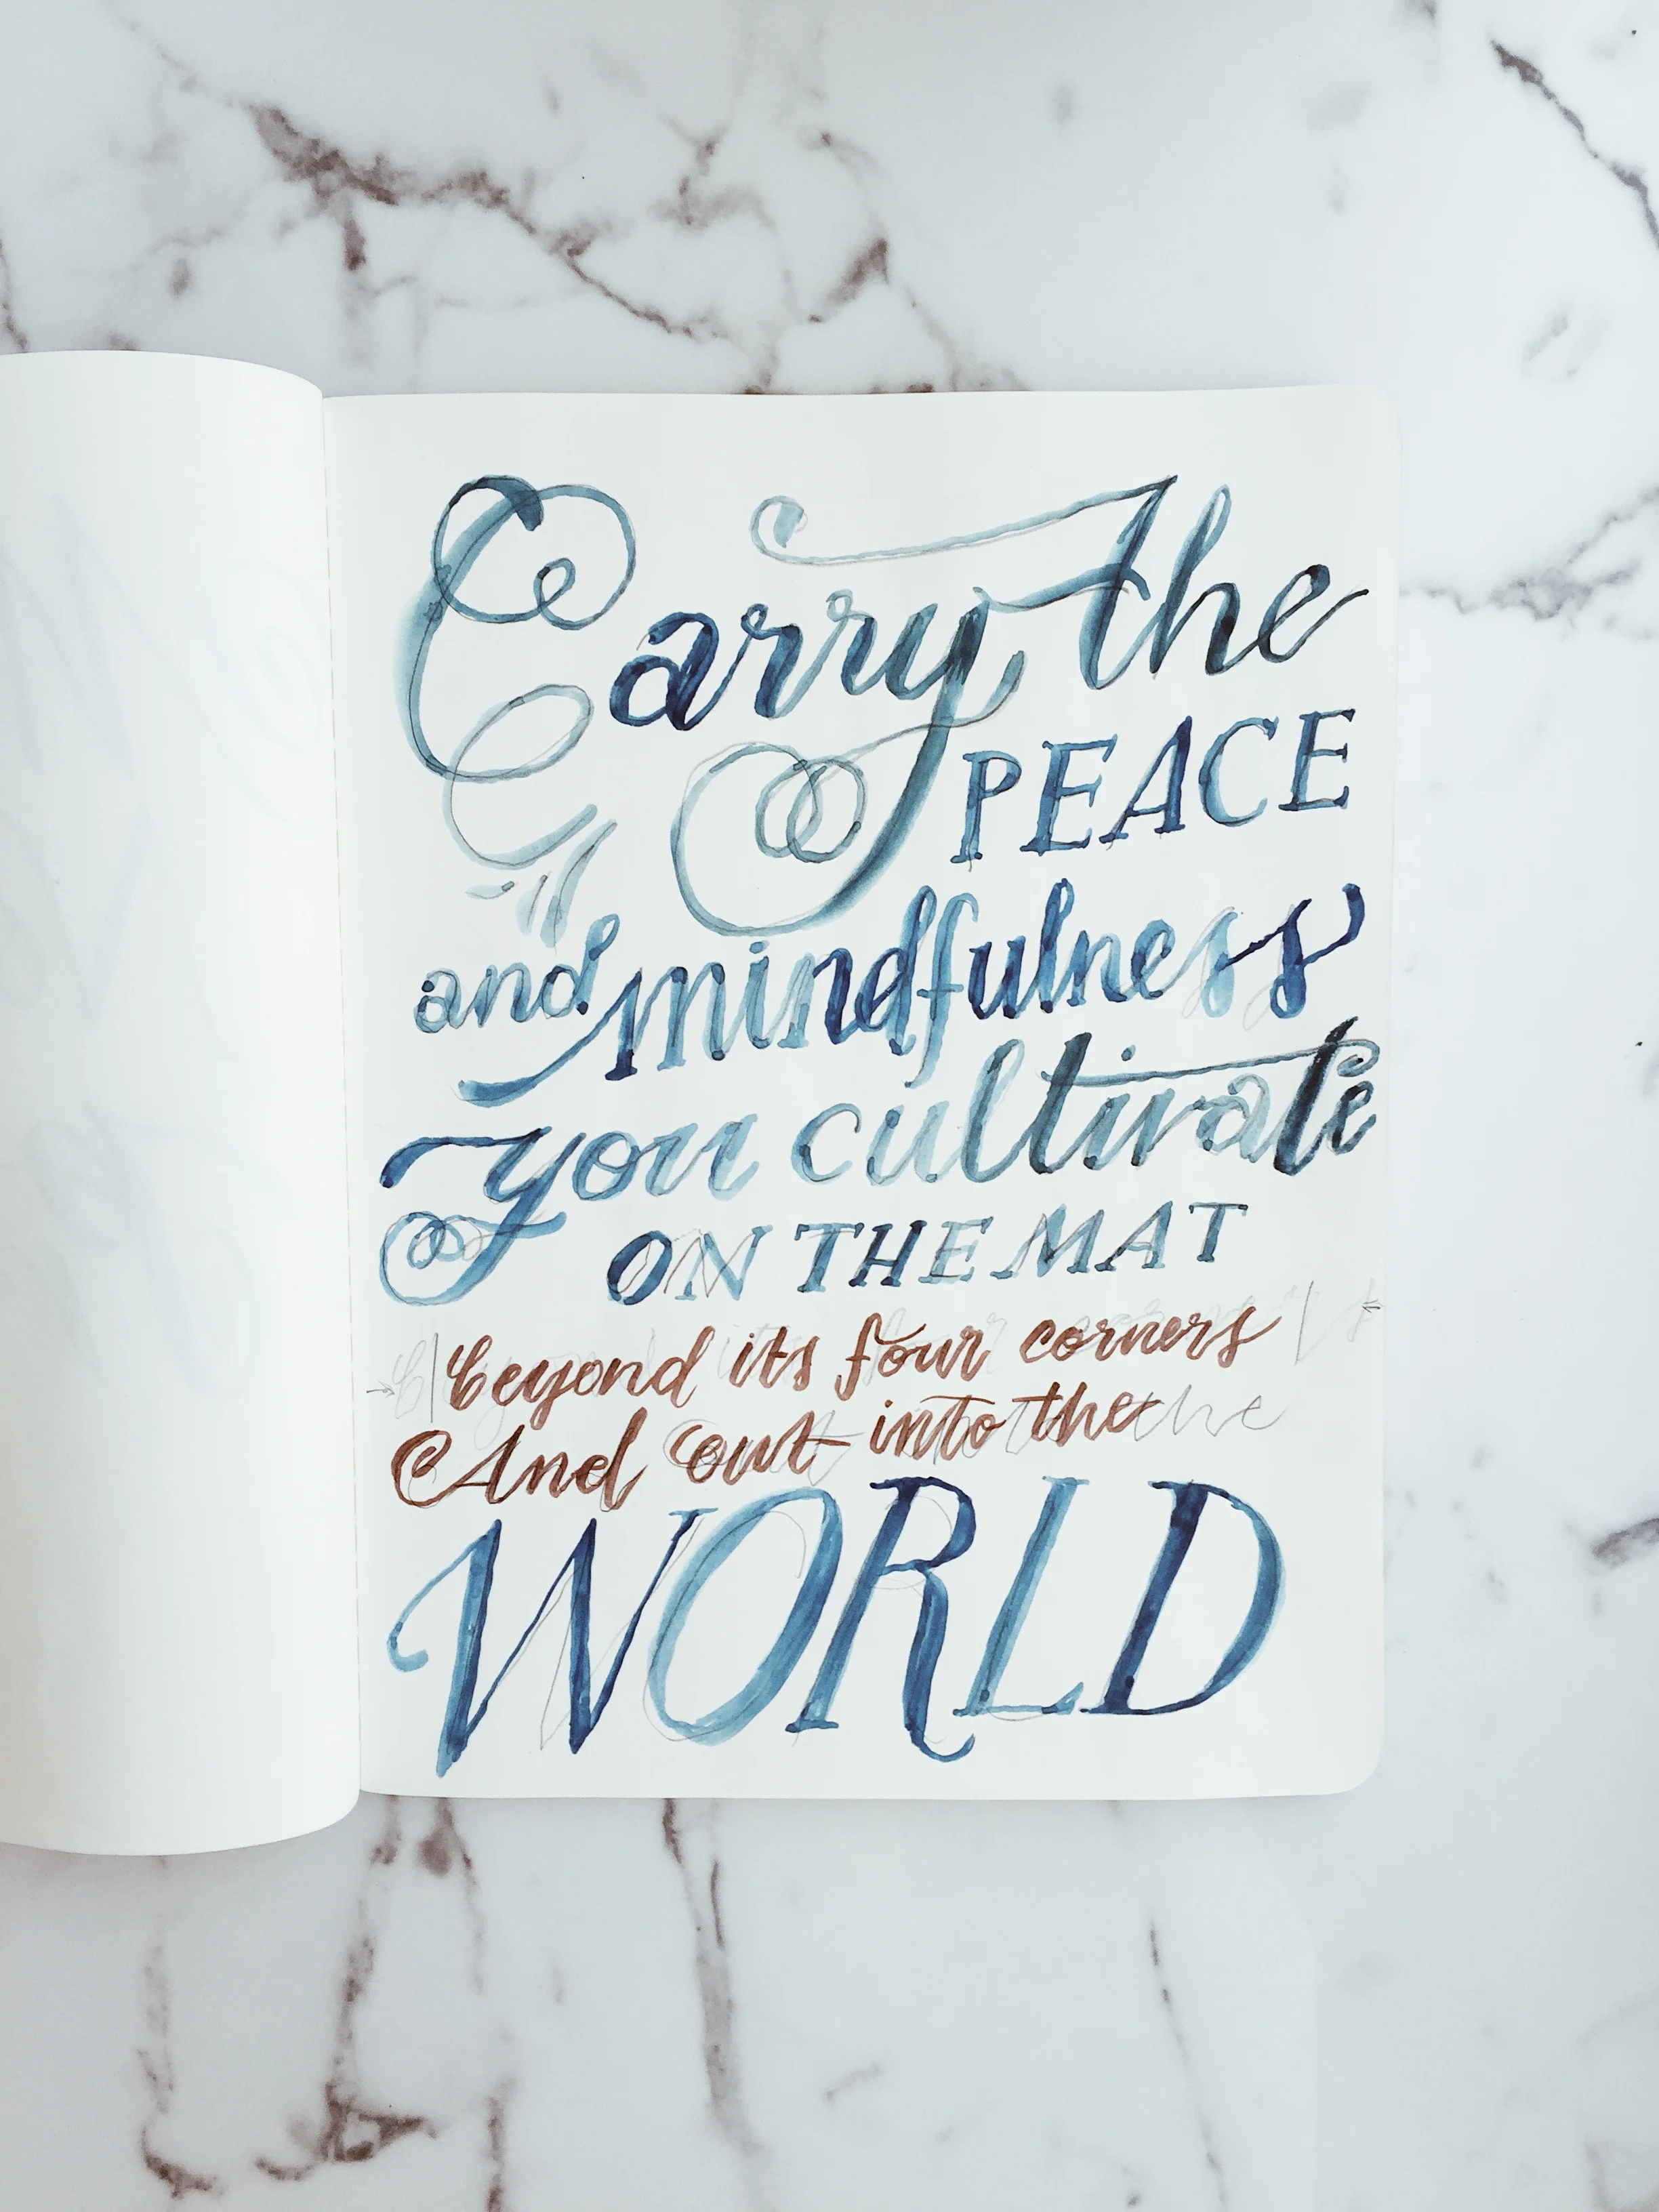 Carry the
PEACE
and mindfulness
you cultivate
ON THE MAT
beyond its four corners
And out into the
WORLD